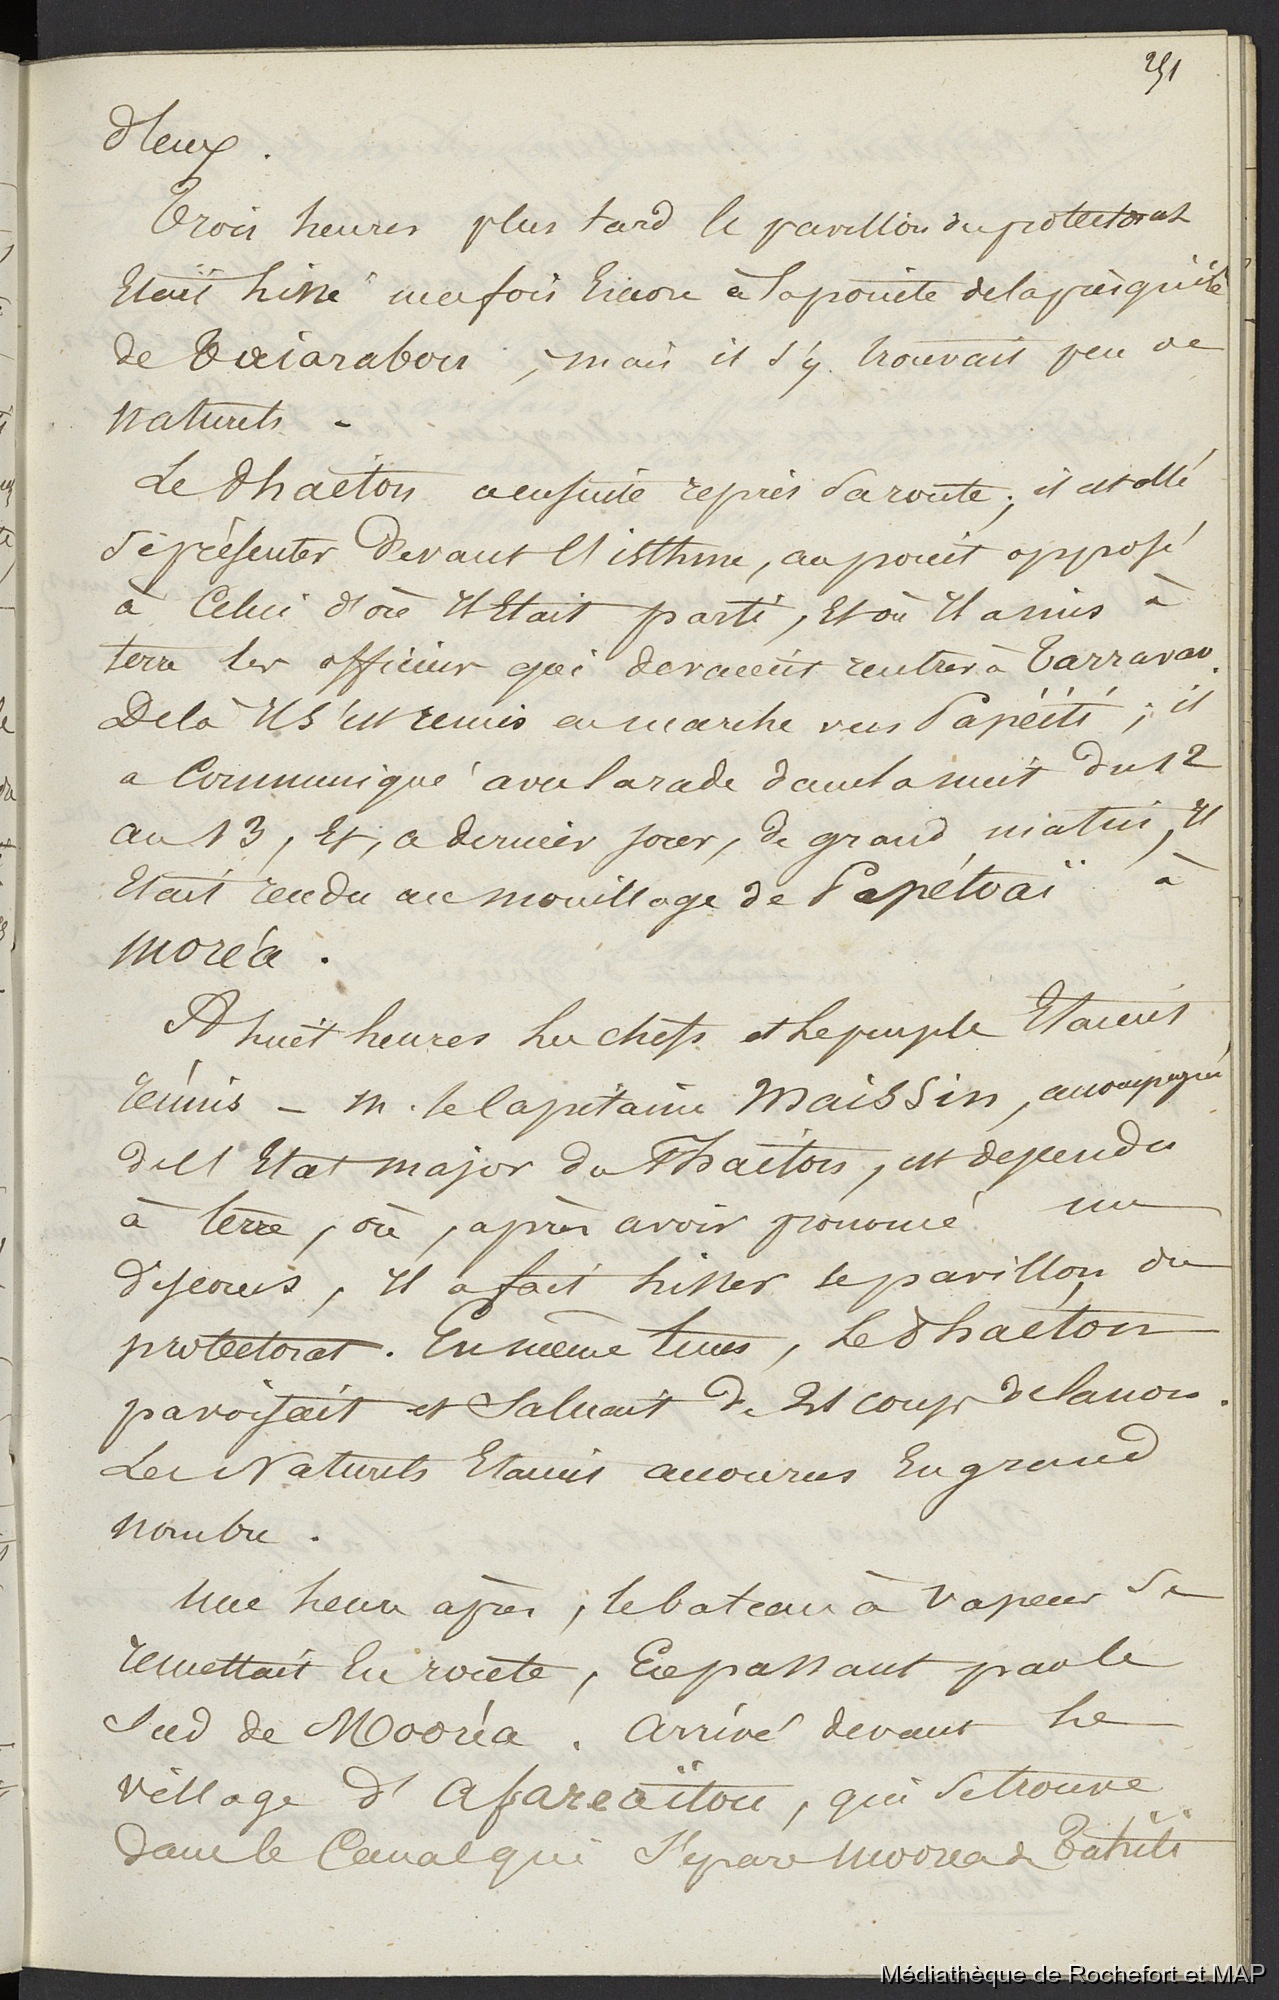 251
d'eux.
Trois heures plus tard le pavillon du protectorat
Etait hissé une fois Encore à la pointe de la presqu'ile
de Taiarabou, mais il s'y trouvait peu de
naturels -
Le Phaéton a ensuite repris sa route; il est allé
se présenter devant l'isthme, au point opposé
à Celui d'où Il Etait parti, Et où Il a mis à
terre les officiers qui devaient rentrer à Tarravao.
De là Il s'est remis en marche vers Papéiti; il
a Communiqué avec la rade dans la nuit du 12
au 13, Et, ce dernier jour, de grand matin, Il
Etait rendu au mouillage de Papétoaï à
Moréa.
A huit heures les chefs et le peuple Etaient
réunis - M. le Capitaine Maissin, accompagné
de l'Etat major du Phaéton, est descendu
à terre, où, après avoir prononcé un
discours, Il a fait hisser le pavillon du
protectorat. En même tems, le Phaéton
pavoisait et Saluait de 21 coups de Canon.
Les Naturels Etaient accourus En grand
nombre.
Une heure après, le bateau à vapeur se
remettait En route, En passant par le
Sud de Mooréa. Arrivé devant le
village d'Afareaïtou, qui se trouve
dans le Canal qui Sépare Moorea de Tahiti
Médiathèque de Rochefort et MAP